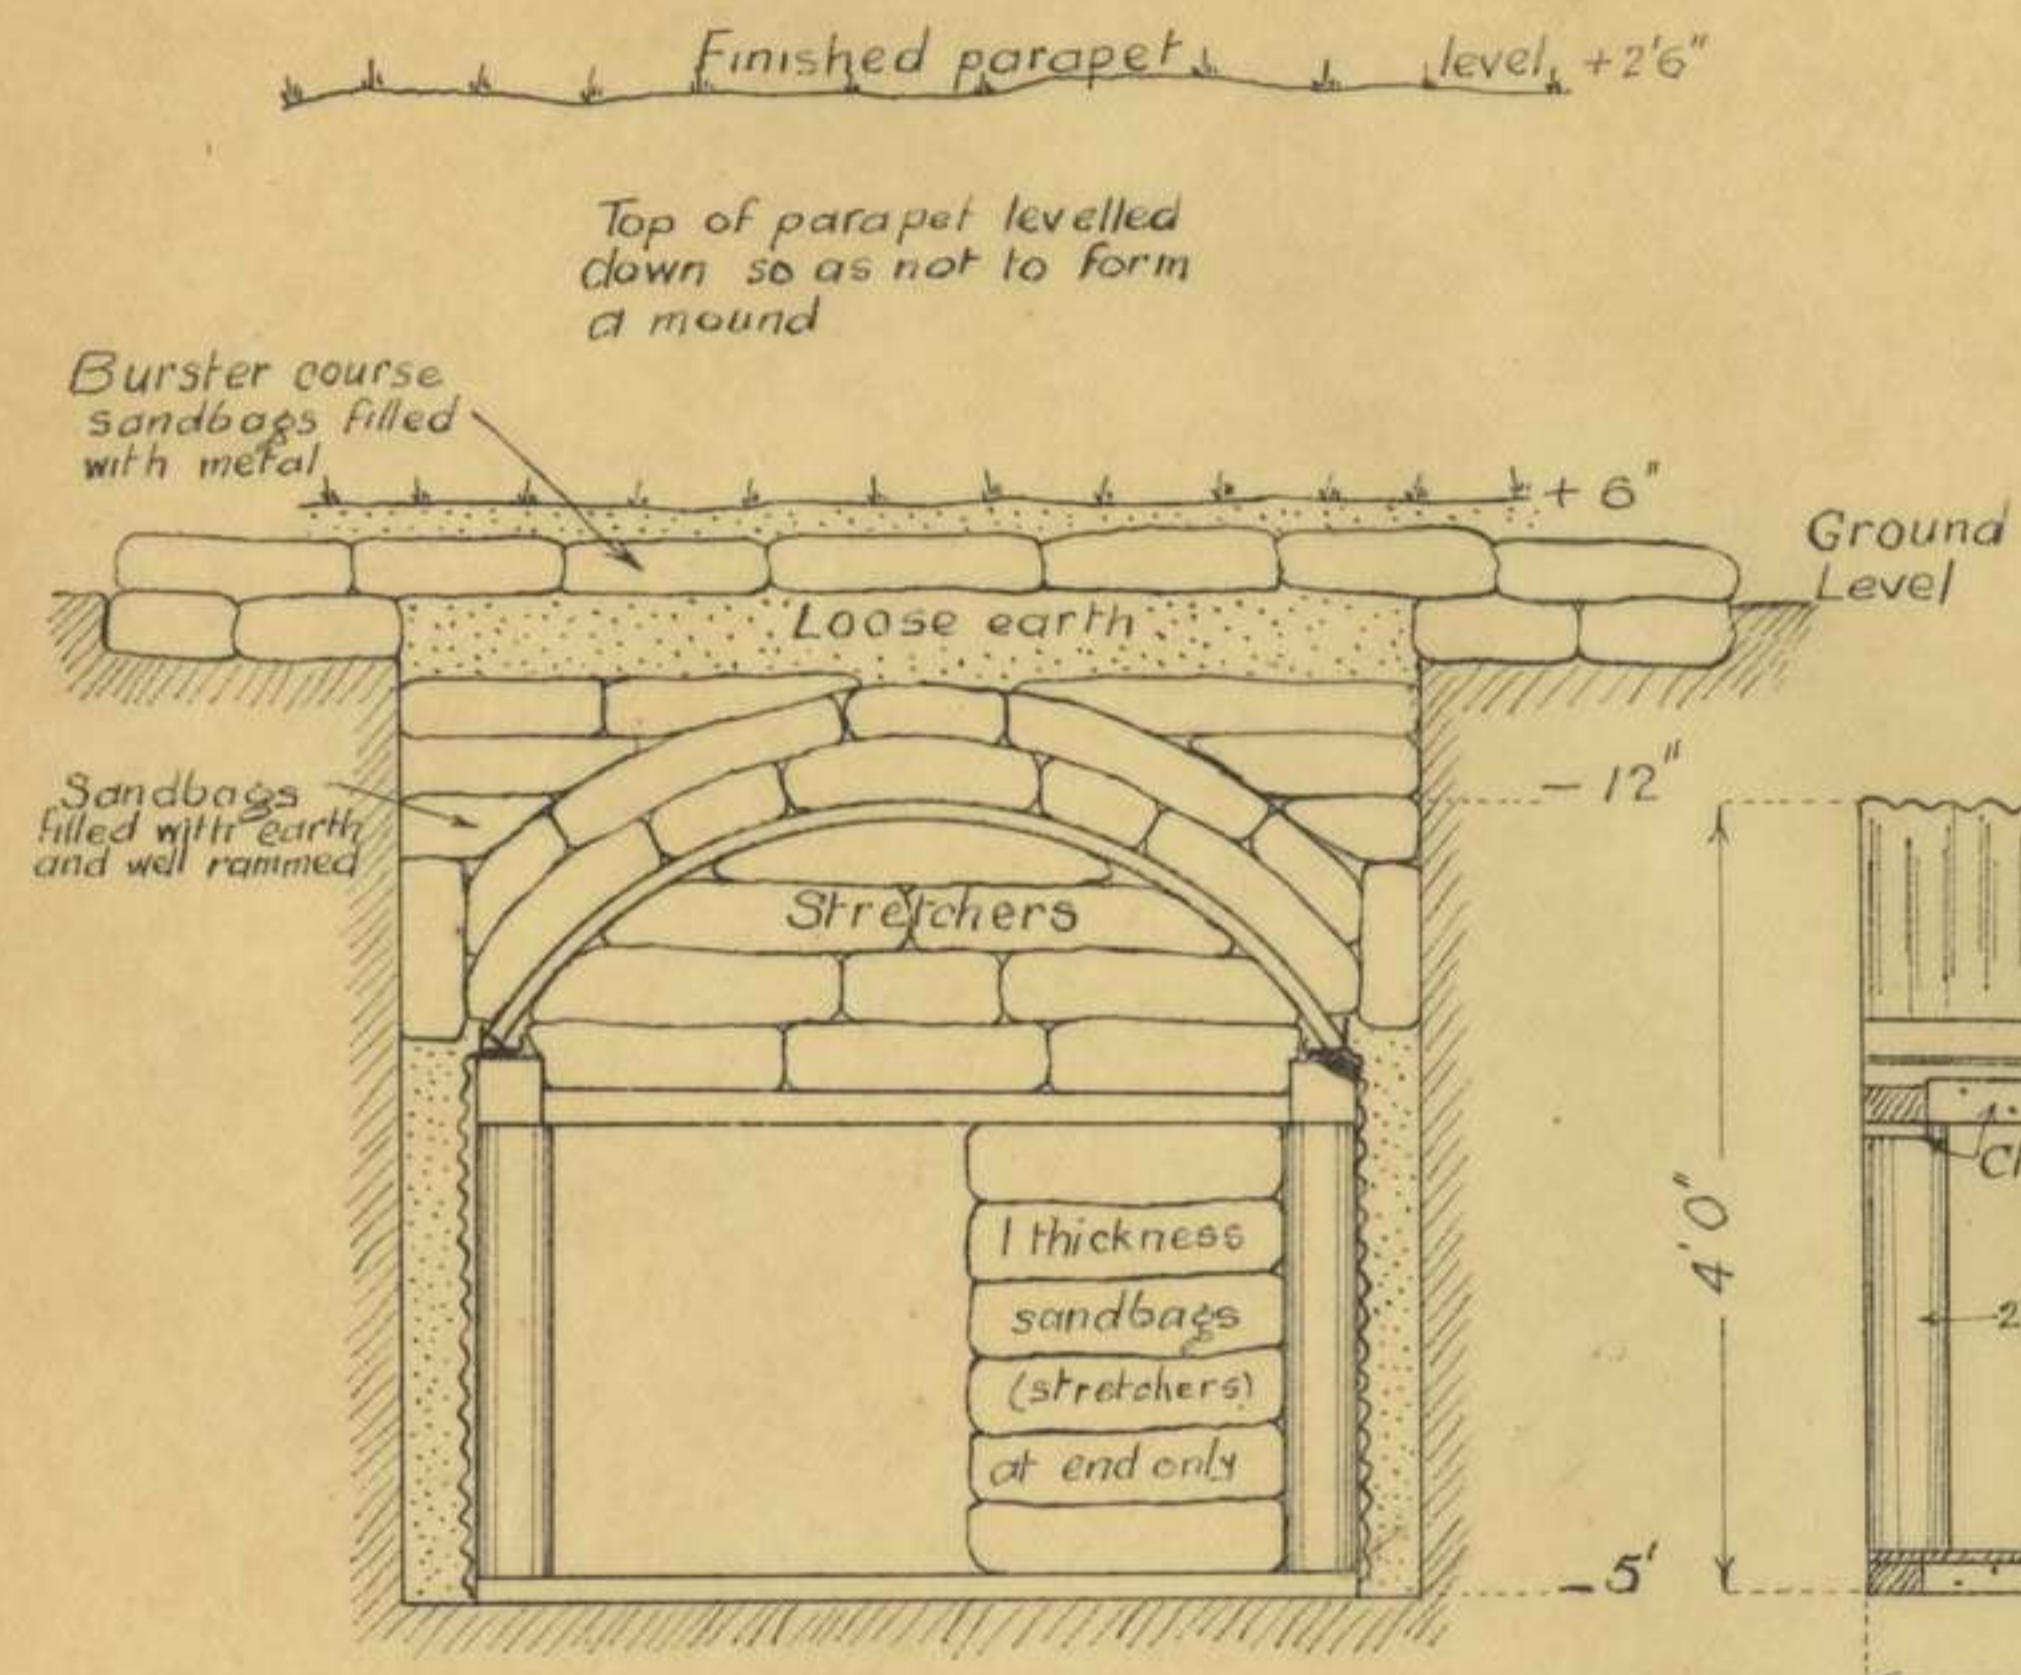 Finished parapet level +2'6"
Top of parapet levelled
down so as not to form
a mound
Burster course
sandbags filled
with metal
+ 6"
Ground
Level
Loose earth
- 12"
Sandbags
filled with earth
and well rammed
Stretchers
4'0"
1 thickness
sandbags
(stretchers)
at end only
2
- 5'